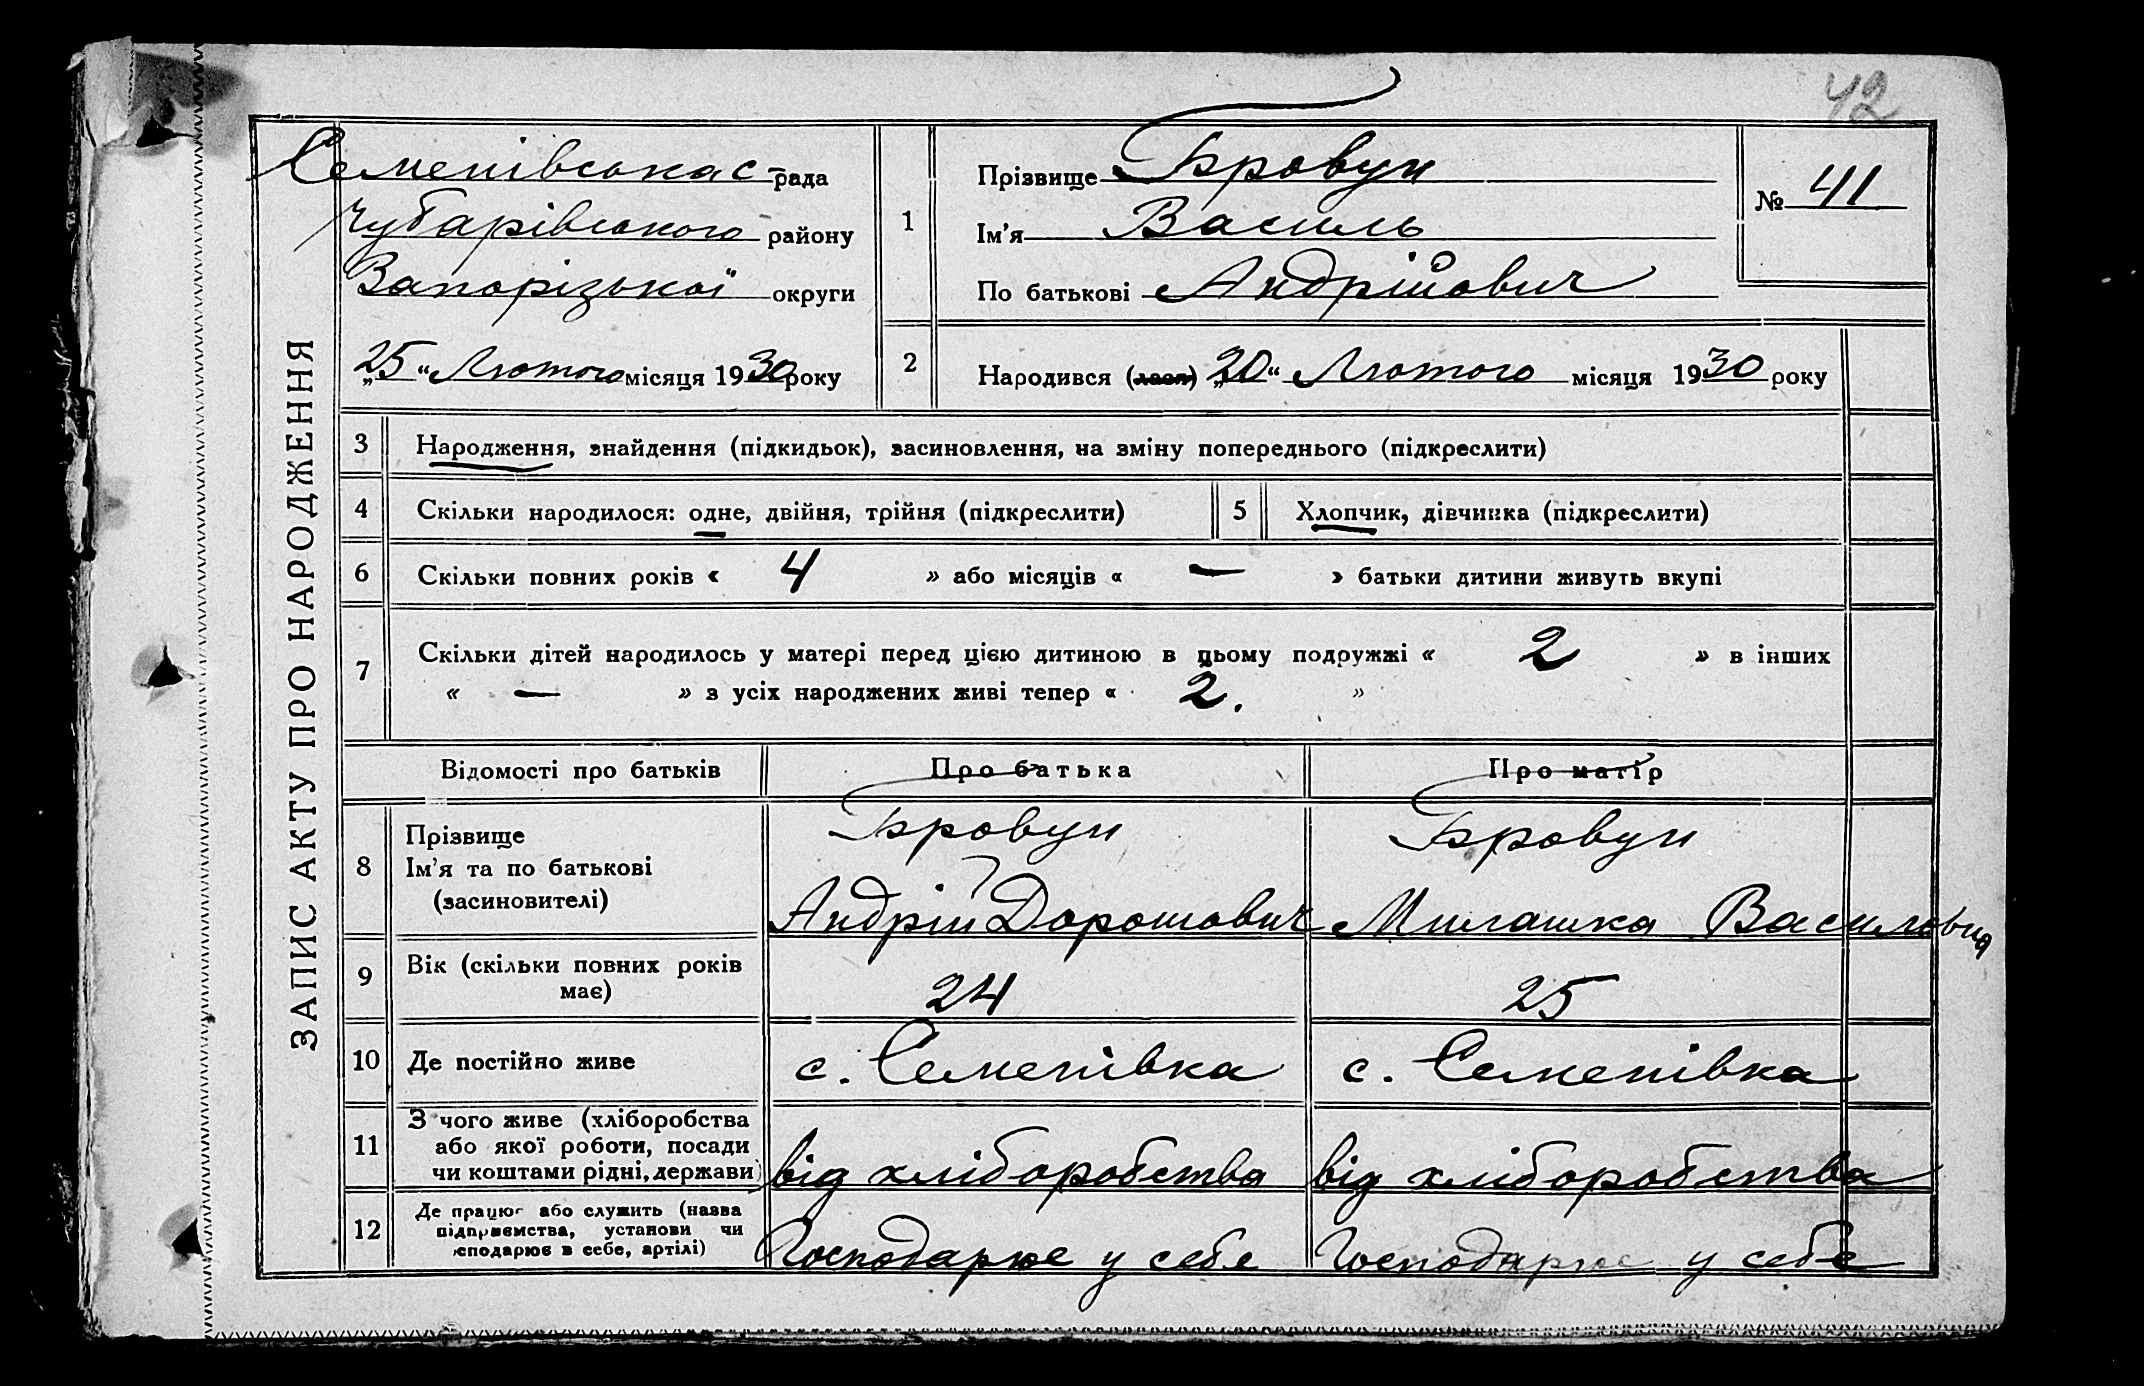 42
ЗАПИС АКТУ ПРО НАРОДЖЕННЯ
Семенівська с-рада
Чубарівського району
Запорізької округи
„25“ Лютого місяця 1930 року
1
Прізвище Бровун
Ім'я Василь
По батькові Андрійович
№ 41
2
Народився (лася) „20“ Лютого місяця 1930 року
3 Народження, знайдення (підкидьок), засиновлення, на зміну попереднього (підкреслити)
4 Скільки народилося: одне, двійня, трійня (підкреслити) 5 Хлопчик, дівчинка (підкреслити)
6 Скільки повних років « 4 » або місяців « — » батьки дитини живуть вкупі
7 Скільки дітей народилось у матері перед цією дитиною в цьому подружжі « 2 » в інших
« — » з усіх народжених живі тепер « 2. »
Відомості про батьків Про батька Про матір
8 Прізвище
Ім'я та по батькові
(засиновителі)
Бровун
Андрій Дорошович
Бровун
Василівна
9 Вік (скільки повних років
має)
24 25
10 Де постійно живе с. Семенівка с. Семенівка
11 З чого живе (хліборобства
або якої роботи, посади
чи коштами рідні, держави)
від хліборобства від хліборобства
12 Де працює або служить (назва
підприємства, установи чи
господарює в себе, артілі)
Господарює у себе Господарює у себе